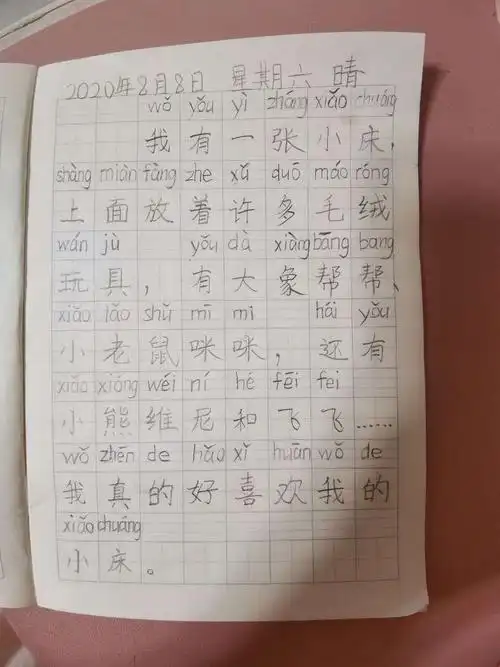 2020年8月8日 星期六 晴
wǒ yǒu yì zhāng xiǎo chuáng
我有一张小床，
shàng miàn fàng zhe xǔ duō máo róng
上面放着许多毛绒
wán jù yǒu dà xiàng bāng bang
玩具，有大象帮帮、
xiǎo lǎo shǔ mī mi hái yǒu
小老鼠咪咪，还有
xiǎo xióng wéi ní hé fēi fei
小熊维尼和飞飞……
wǒ zhēn de hǎo xǐ huān wǒ de
我真的好喜欢我的
xiǎo chuáng
小床。